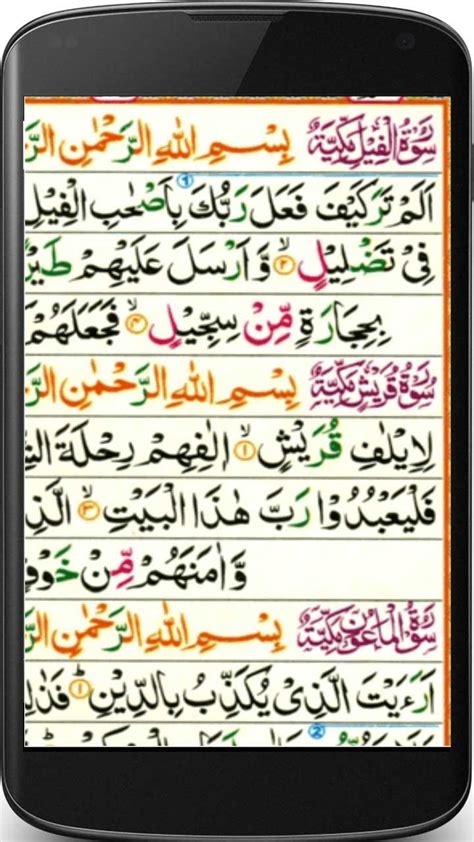 سُوْرَةُ الْفِيْلِ مَكِّيَّةٌ بِسْمِ اللّٰهِ الرَّحْمٰنِ الرَّ
اَلَمْ تَرَ كَيْفَ فَعَلَ رَبُّكَ بِاَصْحٰبِ الْفِيْلِ
فِيْ تَضْلِيْلٍ ۙ۲ وَّ اَرْسَلَ عَلَيْهِمْ طَيْرً
بِحِجَارَةٍ مِّنْ سِجِّيْلٍ ۙ۴ فَجَعَلَهُمْ
سُوْرَةُ قُرَيْشٍ مَكِّيَّةٌ بِسْمِ اللّٰهِ الرَّحْمٰنِ الرَّ
لِاِيْلٰفِ قُرَيْشٍ ۙ۱ اٖلٰفِهِمْ رِحْلَةَ
فَلْيَعْبُدُوْا رَبَّ هٰذَا الْبَيْتِ ۙ۳ الَّذِ
وَّاٰمَنَهُمْ مِّنْ خَوْفٍ
سُوْرَةُ الْمَاعُوْنِ مَكِّيَّةٌ بِسْمِ اللّٰهِ الرَّحْمٰنِ الرَّ
اَرَءَيْتَ الَّذِيْ يُكَذِّبُ بِالدِّيْنِ ؕ۱ فَذٰلِ